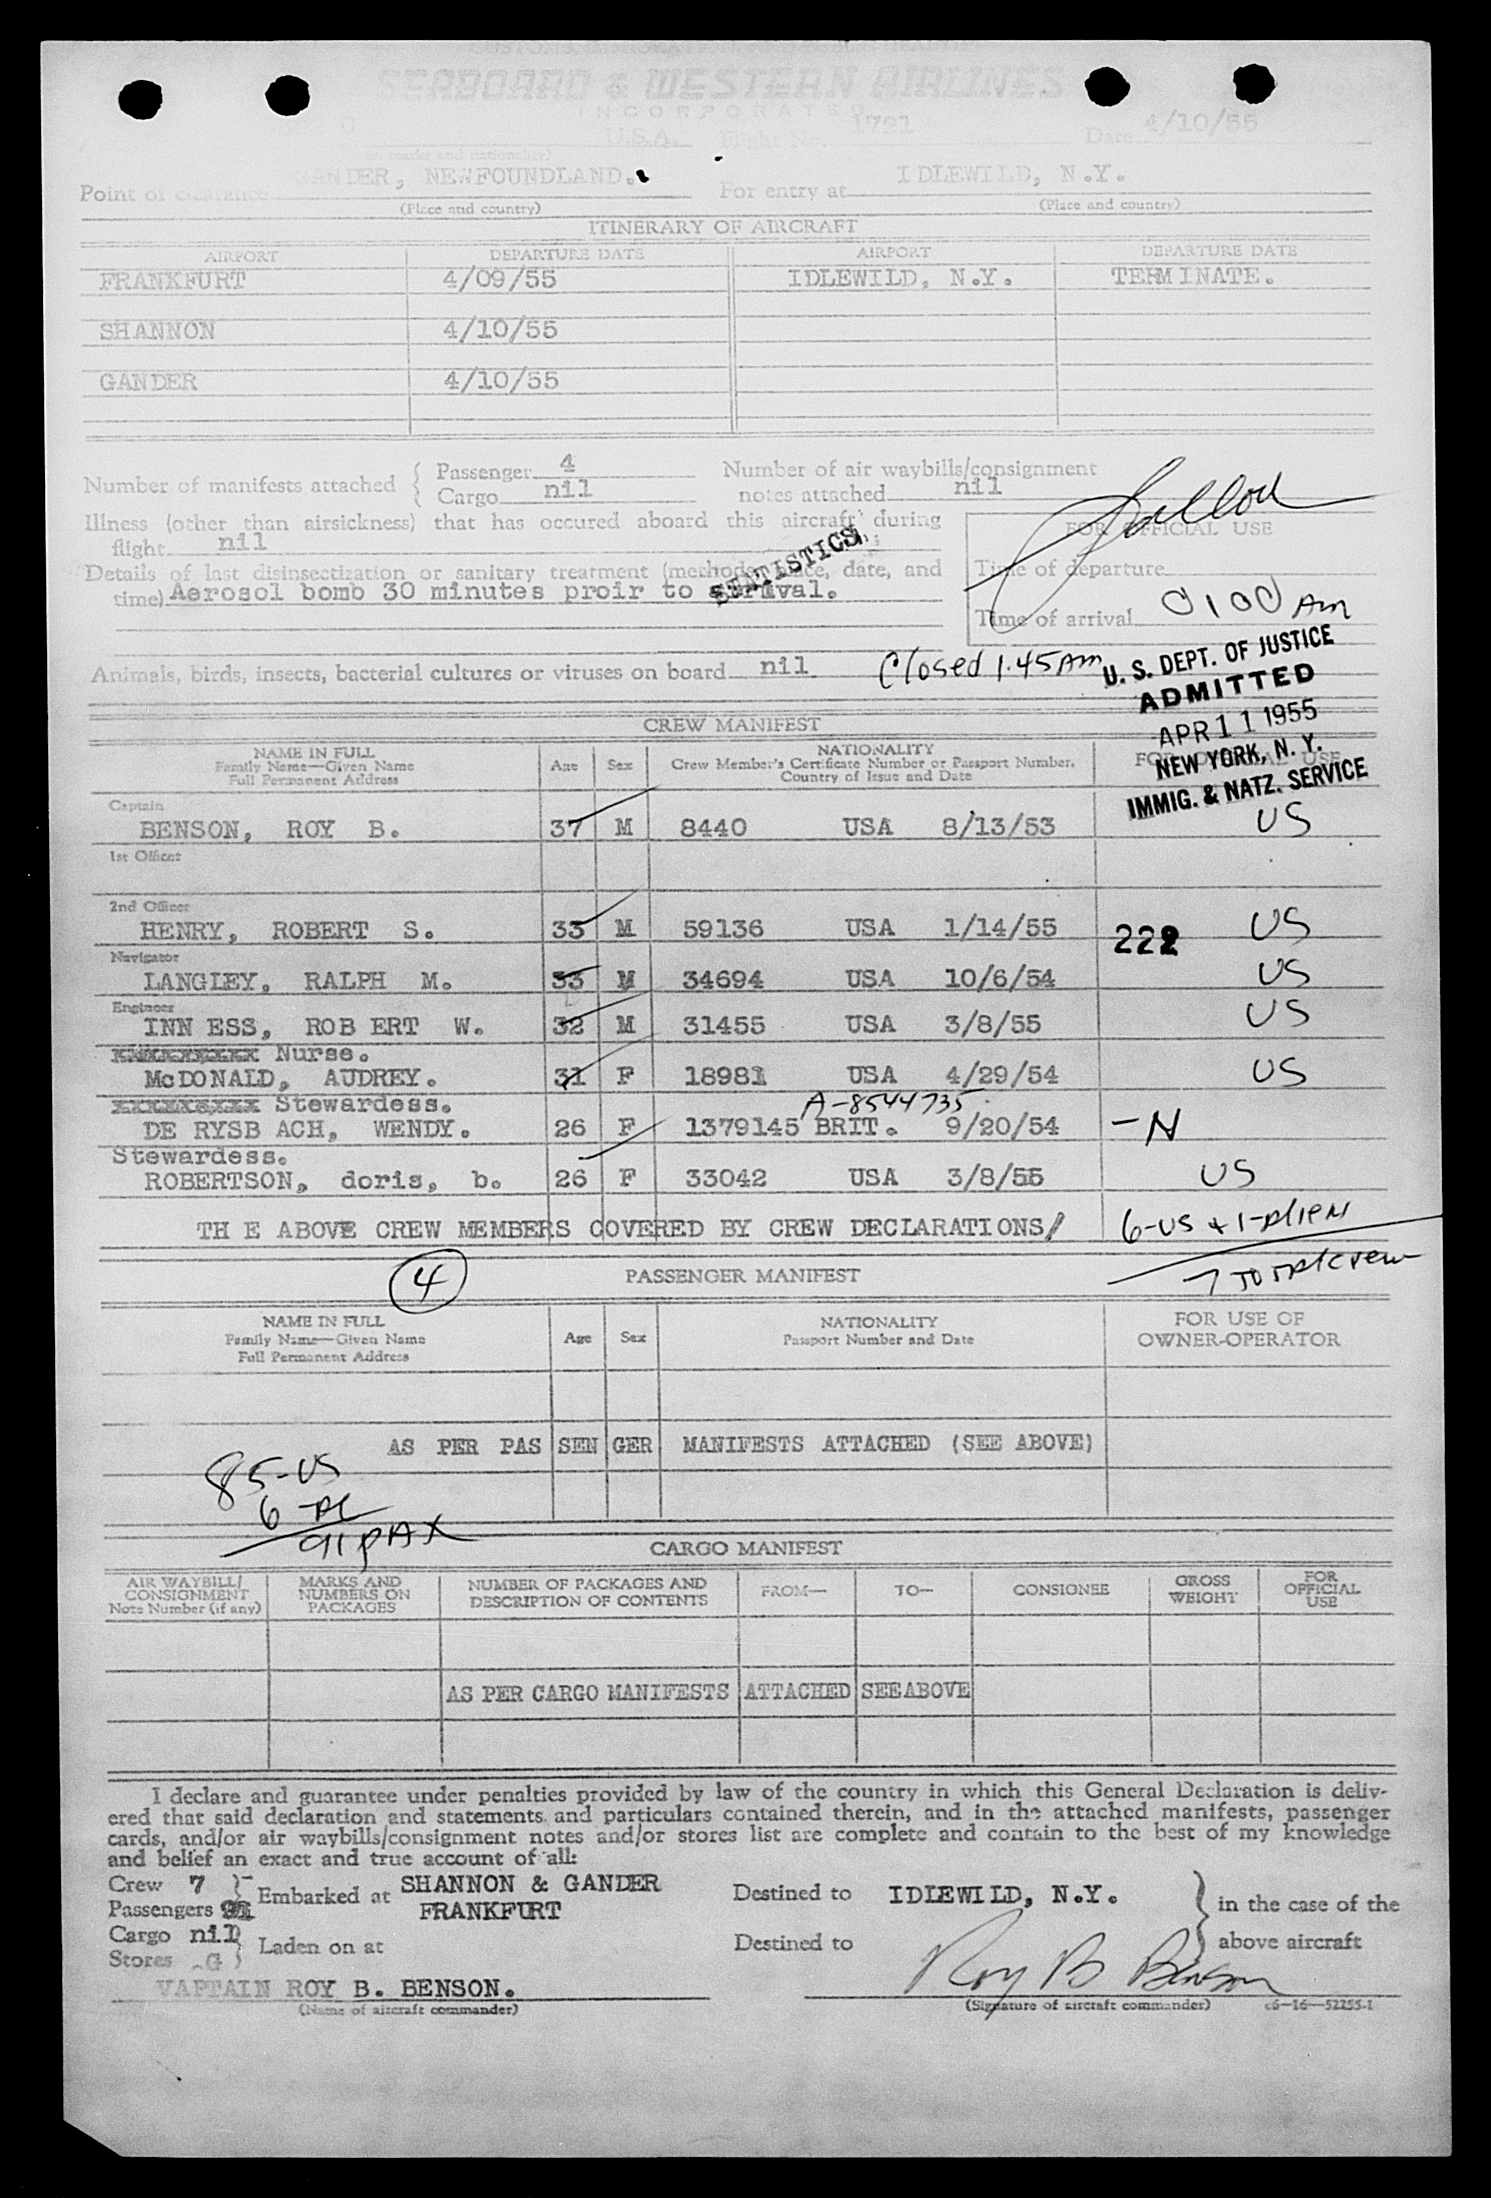 SEABOARD & WESTERN AIRLINES
INCORPORATED
U.S.A. Flight No. 1721 Date 4/10/55
Point of clearance GANDER, NEWFOUNDLAND. For entry at IDLEWILD, N.Y.
(Place and country) (Place and country)
ITINERARY OF AIRCRAFT
AIRPORT DEPARTURE DATE AIRPORT DEPARTURE DATE
FRANKFURT 4/09/55 IDLEWILD, N.Y. TERMINATE.
SHANNON 4/10/55
GANDER 4/10/55
Number of manifests attached { Passenger 4 Number of air waybills/consignment
Cargo nil notes attached nil
Illness (other than airsickness) that has occured aboard this aircraft during
flight nil
FOR OFFICIAL USE
Details of last disinsectization or sanitary treatment (methods, place, date, and
time) Aerosol bomb 30 minutes proir to arrival.
Time of departure
Time of arrival 0100 Am
Animals, birds, insects, bacterial cultures or viruses on board nil Closed 1.45 Am
U. S. DEPT. OF JUSTICE
ADMITTED
APR 11 1955
NEW YORK, N. Y.
IMMIG. & NATZ. SERVICE
CREW MANIFEST
NAME IN FULL
Family Name—Given Name
Full Permanent Address
Age Sex
NATIONALITY
Crew Member's Certificate Number or Passport Number.
Country of Issue and Date
FOR OFFICIAL USE
Captain
BENSON, ROY B. 37 M 8440 USA 8/13/53 US
1st Officer
2nd Officer
HENRY, ROBERT S. 33 M 59136 USA 1/14/55 222 US
Navigator
LANGLEY, RALPH M. 33 M 34694 USA 10/6/54 US
Engineer
INN ESS, ROB ERT W. 32 M 31455 USA 3/8/55 US
Nurse.
McDONALD, AUDREY. 31 F 18981 USA 4/29/54 US
Stewardess. A-8544735
DE RYSB ACH, WENDY. 26 F 1379145 BRIT. 9/20/54 -N
Stewardess.
ROBERTSON, doris, b. 26 F 33042 USA 3/8/55 US
TH E ABOVE CREW MEMBERS COVERED BY CREW DECLARATIONS/ 6-US + 1-Alien
7 TOTAL Crew
4 PASSENGER MANIFEST
NAME IN FULL
Family Name—Given Name
Full Permanent Address
Age Sex
NATIONALITY
Passport Number and Date
FOR USE OF
OWNER-OPERATOR
AS PER PAS SEN GER MANIFESTS ATTACHED (SEE ABOVE)
85-US
6-AL
91 PAX
CARGO MANIFEST
AIR WAYBILL/
CONSIGNMENT
Note Number (if any)
MARKS AND
NUMBERS ON
PACKAGES
NUMBER OF PACKAGES AND
DESCRIPTION OF CONTENTS
FROM— TO— CONSIGNEE
GROSS
WEIGHT
FOR
OFFICIAL
USE
AS PER CARGO MANIFESTS ATTACHED SEEABOVE
I declare and guarantee under penalties provided by law of the country in which this General Declaration is deliv-
ered that said declaration and statements and particulars contained therein, and in the attached manifests, passenger
cards, and/or air waybills/consignment notes and/or stores list are complete and contain to the best of my knowledge
and belief an exact and true account of all:
Crew 7 } Embarked at SHANNON & GANDER Destined to IDLEWILD, N.Y. } in the case of the
Passengers 91 FRANKFURT
Cargo nil } Laden on at Destined to above aircraft
Stores
VAPTAIN ROY B. BENSON. Roy B Benson
(Name of aircraft commander) (Signature of aircraft commander) c6—16—52255-1